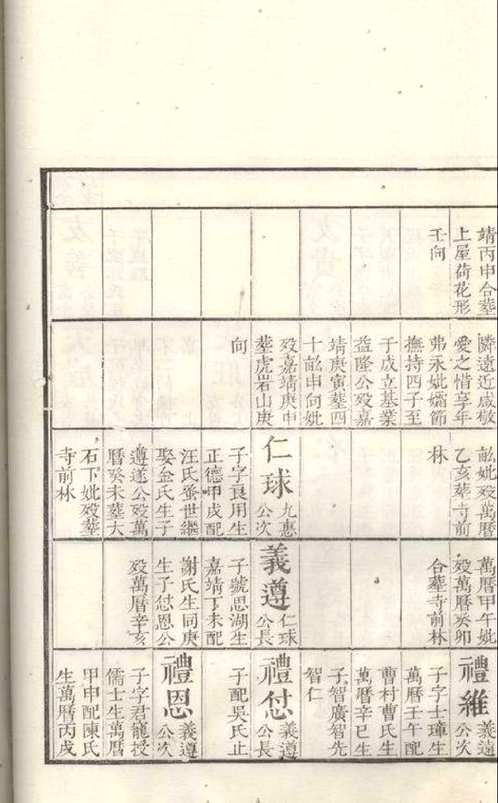 靖丙申合葬
上屋荷花形
壬向
隣遠近咸敬
愛之惜享年
弗永妣孀節
撫持四子至
于成立基業
益隆公殁嘉
靖庚寅葬四
十畝申向妣
殁嘉靖庚申
葬虎岩山庚
向
畝妣殁萬曆
乙亥葬寺前
林
仁球 九惠公次
子字良用生
正德甲戌配
汪氏蚤世繼
娶金氏生子
遵遂公殁萬
曆癸未葬大
石下妣殁葬
寺前林
萬曆甲午妣
殁萬曆癸卯
合葬寺前林
義遵 仁球公長
子號思湖生
嘉靖丁未配
謝氏生同庚
生子怤恩公
殁萬曆辛亥
禮維 義遠公次
子字士瑋生
萬曆壬午配
曹村曹氏生
萬曆辛巳生
子智廣智先
智仁
禮怤 義遵公長
子配吳氏止
禮恩 義遵公次
子字君寵授
儒士生萬曆
甲申配陳氏
生萬曆丙戌